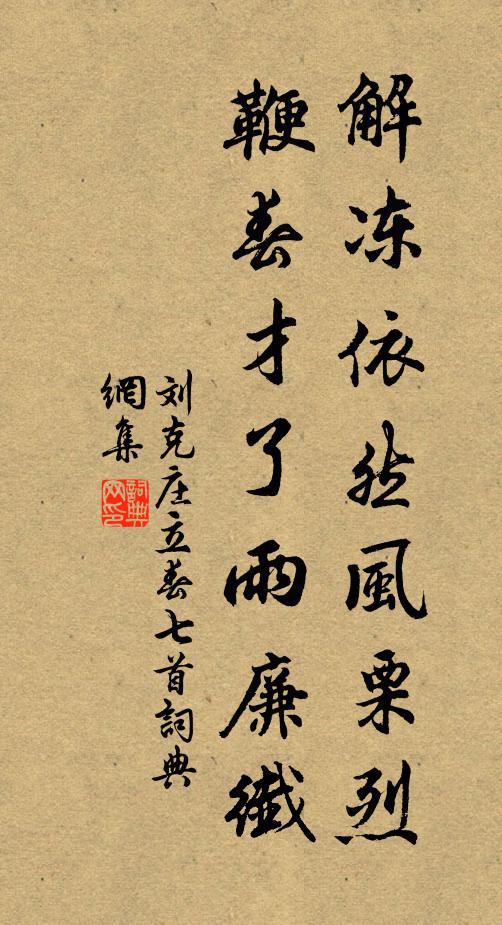 解冻依然風栗烈
鞭春才了雨廉纖
刘克庄立春七首詞典
網集
詞典網印